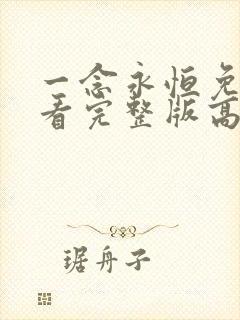 一念永恒免
看完整版高
琚舟子